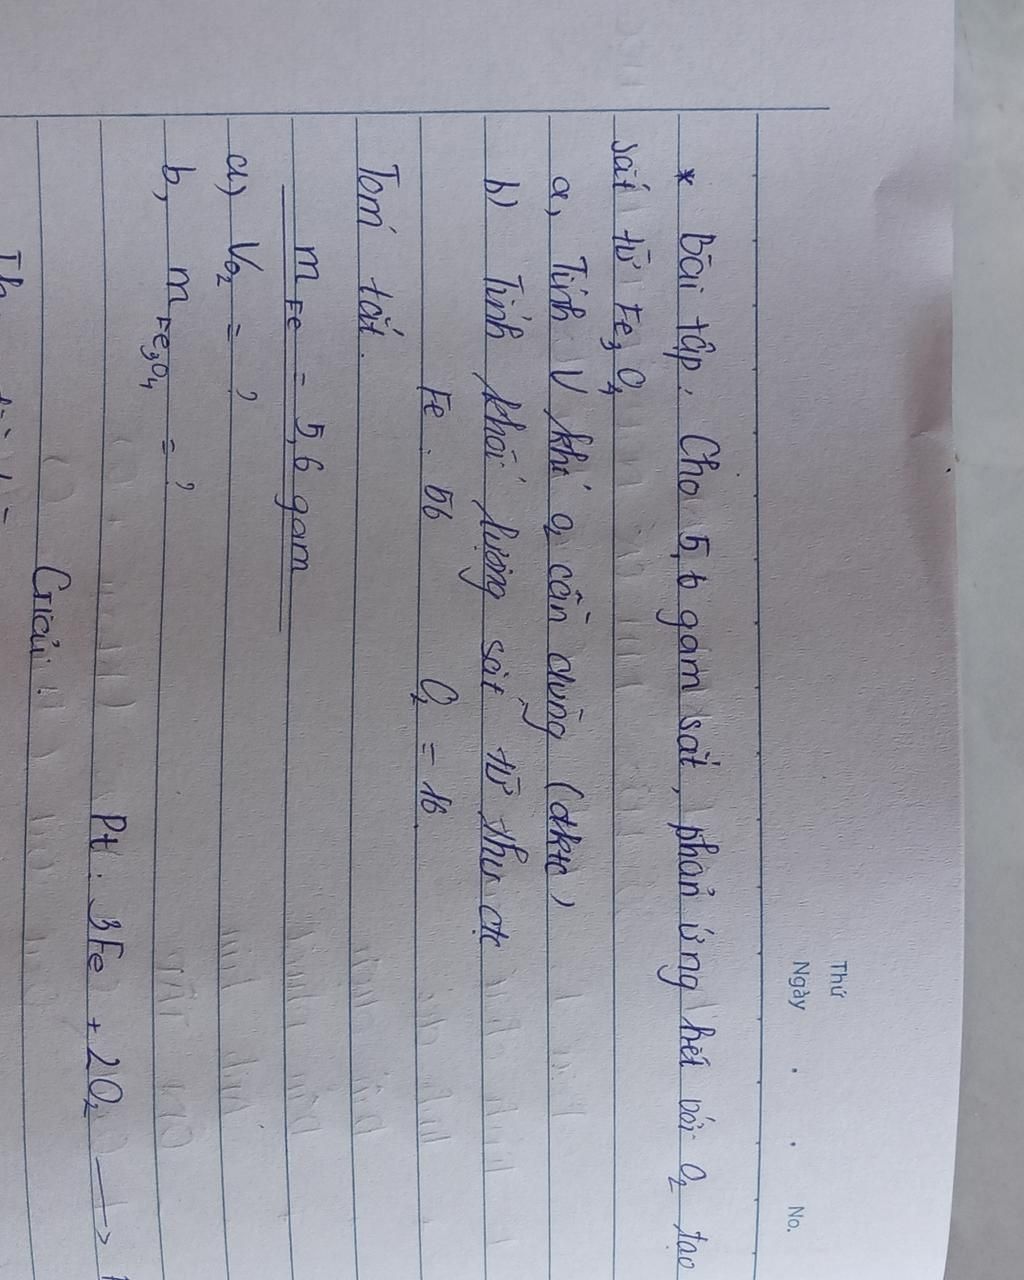 Thứ
Ngày . . No.
* Bài tập. Cho 5,6 gam sắt, phản ứng hết với O₂ tạo
sắt từ Fe₃O₄
a, Tính V khí O₂ cần dùng (đktc)
b) Tính khối lượng sắt từ thu đc
Fe : 56 O₂ = 16
Tóm tắt.
m Fe = 5,6 gam
a) V O₂ = ?
b, m Fe₃O₄ = ?
Pt : 3Fe + 2O₂ →
Giải :